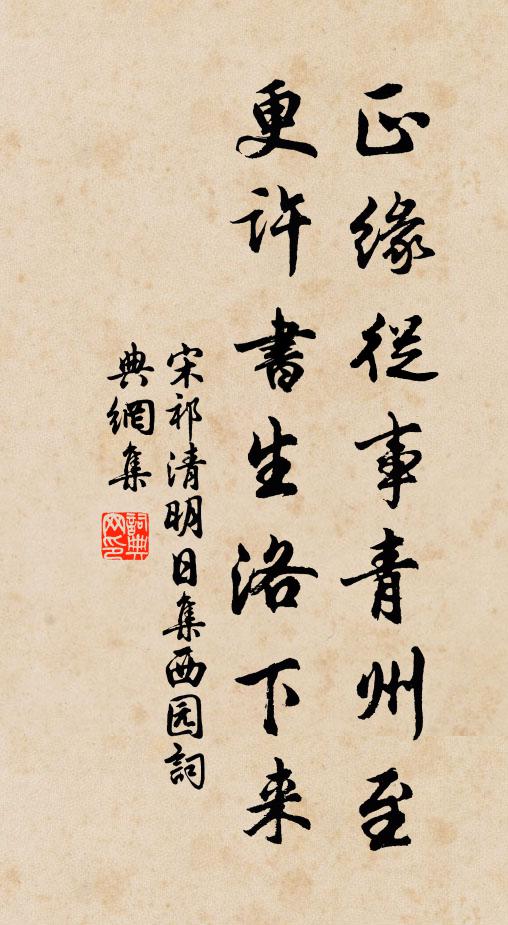 正缘從事青州至
更许書生洛下来
宋祁清明日集西园詞
典網集
詞典
网印